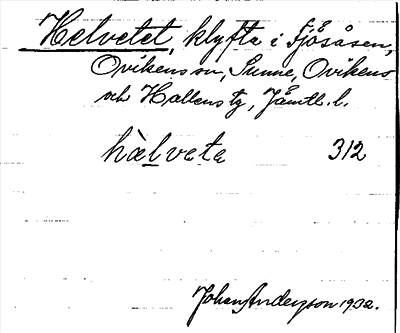 Helvetet, klyfta i Sjösåsen,
Ovikens sn, Sunne, Ovikens
och Hallens tg, Jämtl. l.
hàlveta 312
Johan Anderzson 1932.